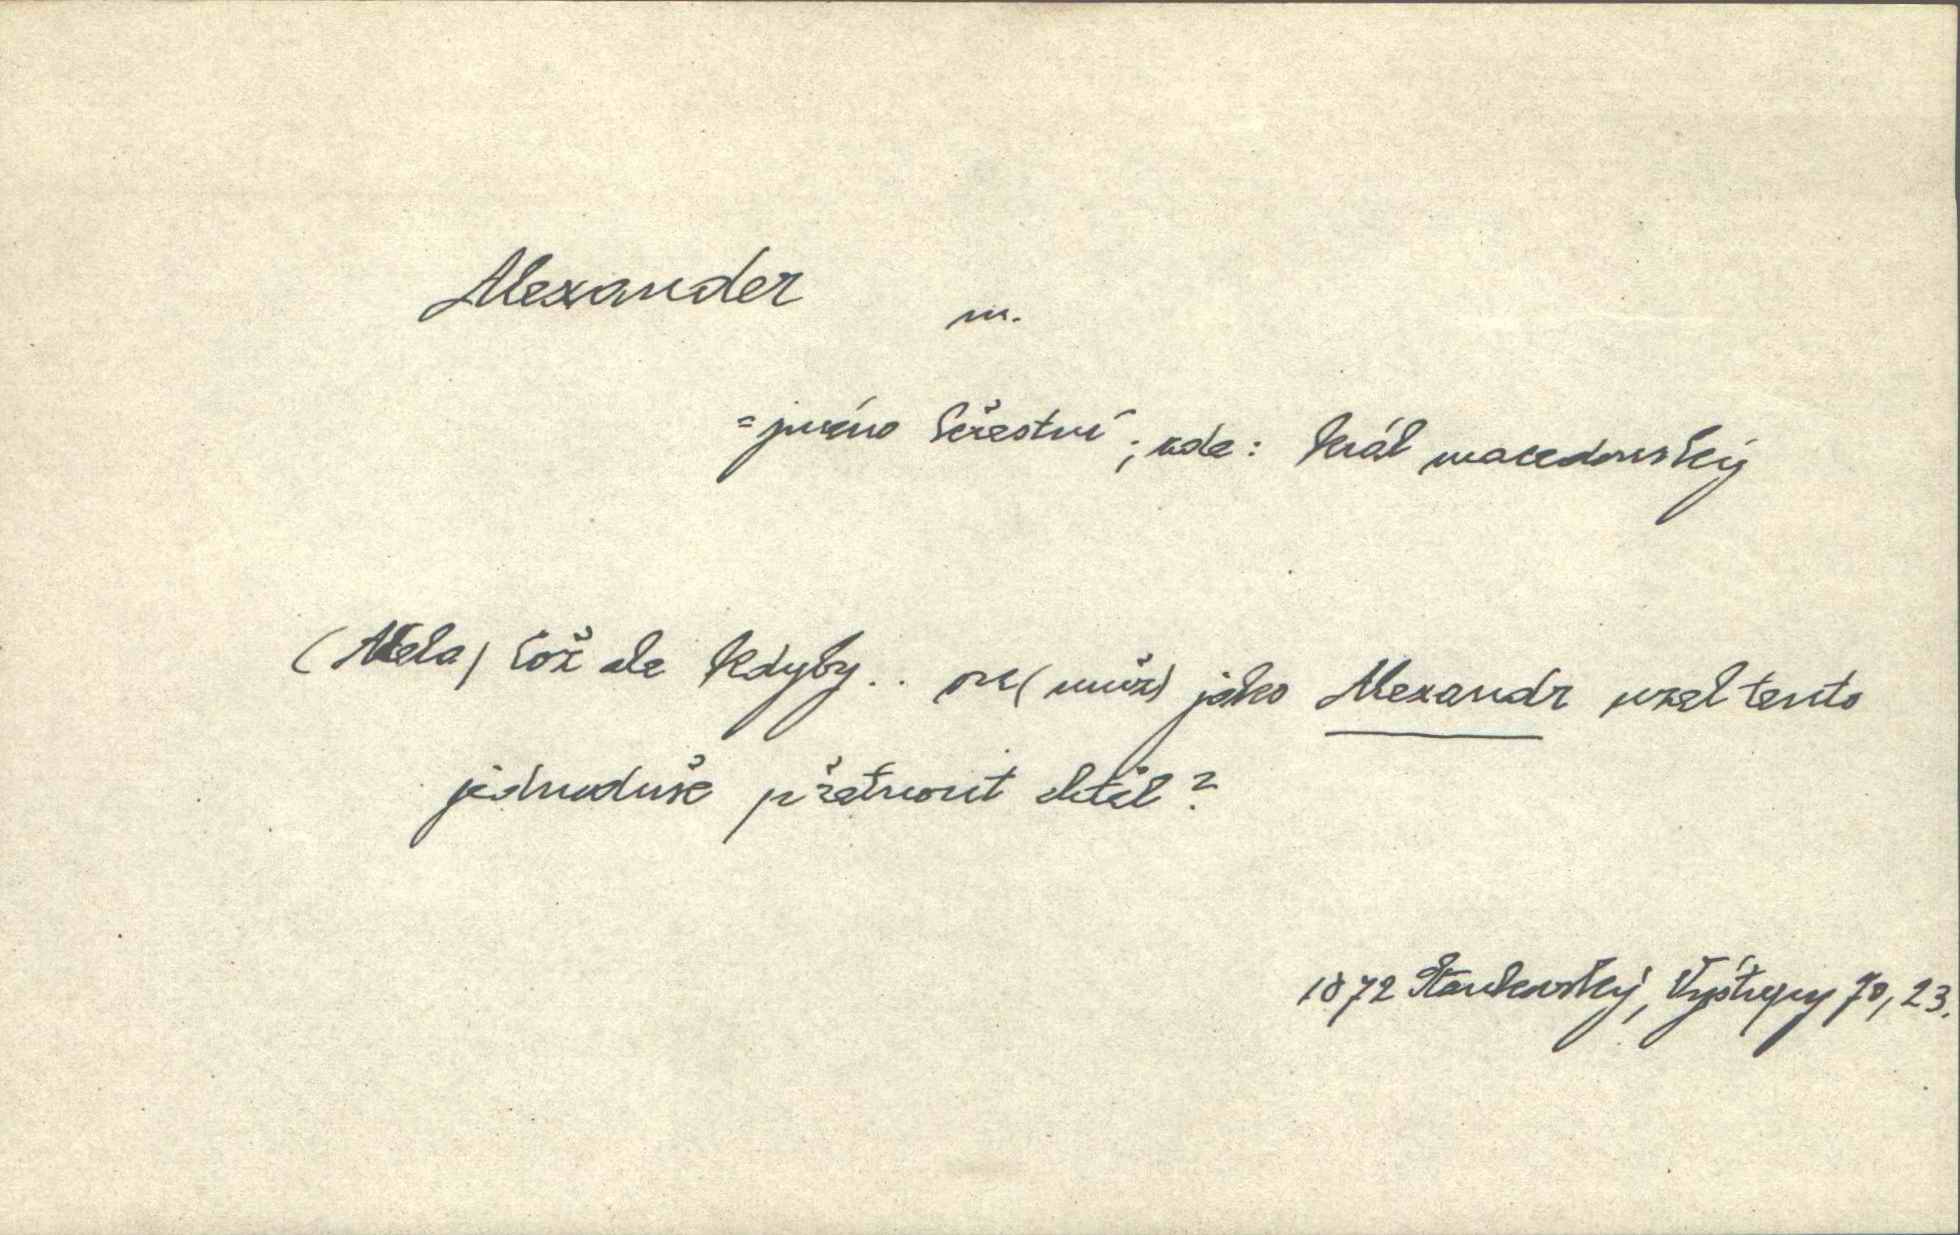 Alexander m.
= jméno křestní; zde: král macedonský
(Adéla) Což ale kdyby.. on (muž) jako Alexandr uzel tento
jednoduše přetnouti chtěl?
1872 Stankovský, Výstupy 70, 23.